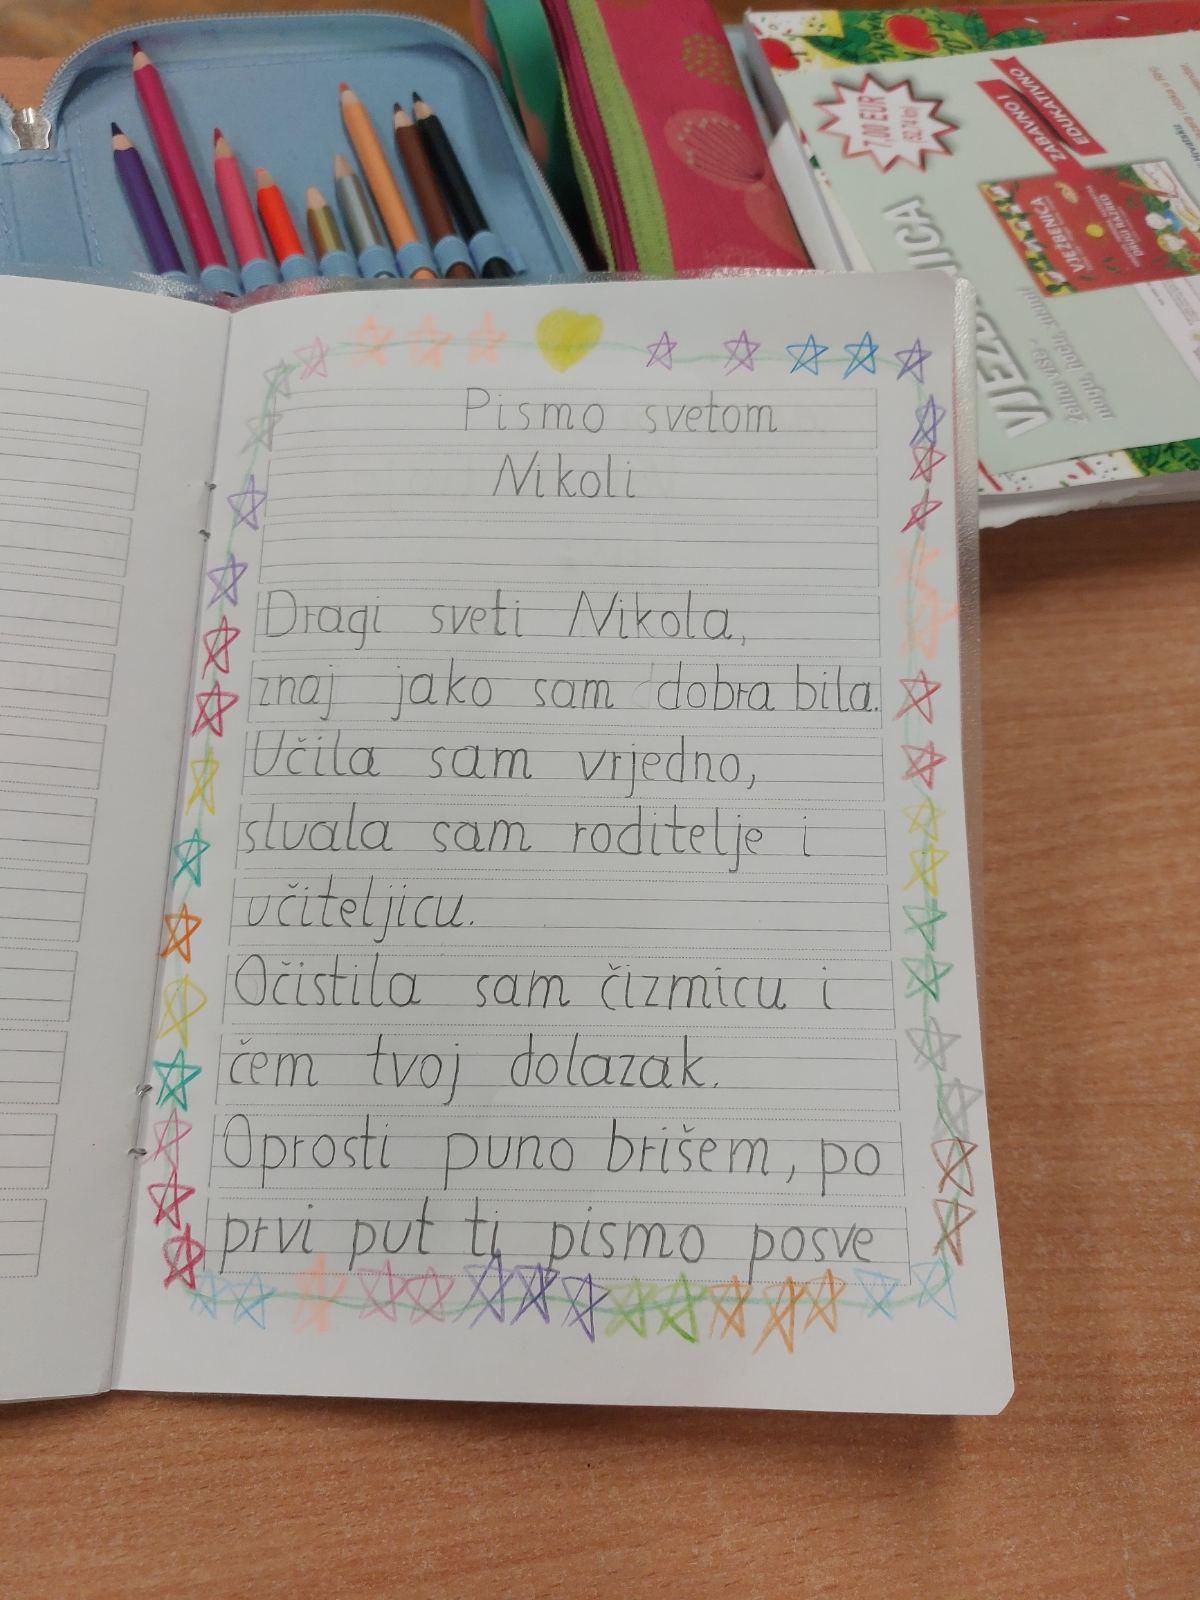 Pismo svetom
Nikoli
Dragi sveti Nikola,
znaj jako sam dobra bila.
Učila sam vrjedno,
slušala sam roditelje i
učiteljicu.
Očistila sam čizmicu i
čem tvoj dolazak.
Oprosti puno brišem, po
prvi put ti pismo posve
7,00 EUR
(52,74 kn)
ZABAVNO I
EDUKATIVNO
VJEŽBENICA
DRUGI RAZRED
Želim više -